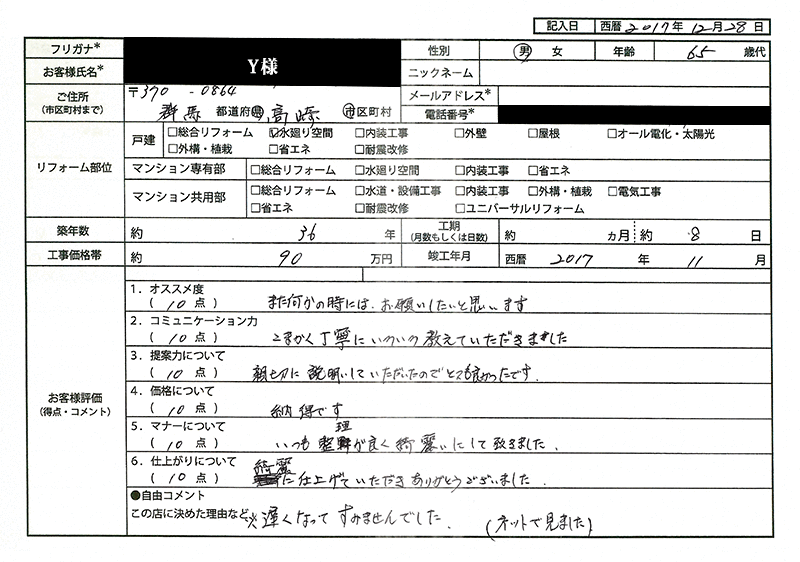 記入日 西暦 2017年 12月 28日
フリガナ* 性別 男 女 年齢 65 歳代
お客様氏名* Y様 ニックネーム
ご住所 (市区町村まで) 〒370-0864 メールアドレス*
群馬 都道府県 高崎 市区町村 電話番号*
リフォーム部位 戸建 □総合リフォーム ☑水廻り空間 □内装工事 □外壁 □屋根 □オール電化・太陽光
□外構・植栽 □省エネ □耐震改修
マンション専有部 □総合リフォーム □水廻り空間 □内装工事 □省エネ
マンション共用部 □総合リフォーム □水道・設備工事 □内装工事 □外構・植栽 □電気工事
□省エネ □耐震改修 □ユニバーサルリフォーム
築年数 約 36 年 工期 (月数もしくは日数) 約 ヵ月 約 8 日
工事価格帯 約 90 万円 竣工年月 西暦 2017 年 11 月
お客様評価 (得点・コメント)
1．オススメ度
( 10 点 ) また何かの時には、お願いしたいと思います
2．コミュニケーション力
( 10 点 ) こまかく丁寧にいろいろ教えていただきました
3．提案力について
( 10 点 ) 親切に説明していただいたのでとても良かったです.
4．価格について
( 10 点 ) 納得です
5．マナーについて 理
( 10 点 ) いつも整が良く綺麗にして致きました.
6．仕上がりについて 綺麗
( 10 点 ) に仕上げていただきありがとうございました.
●自由コメント
この店に決めた理由など ※遅くなってすみませんでした. (ネットで見ました)